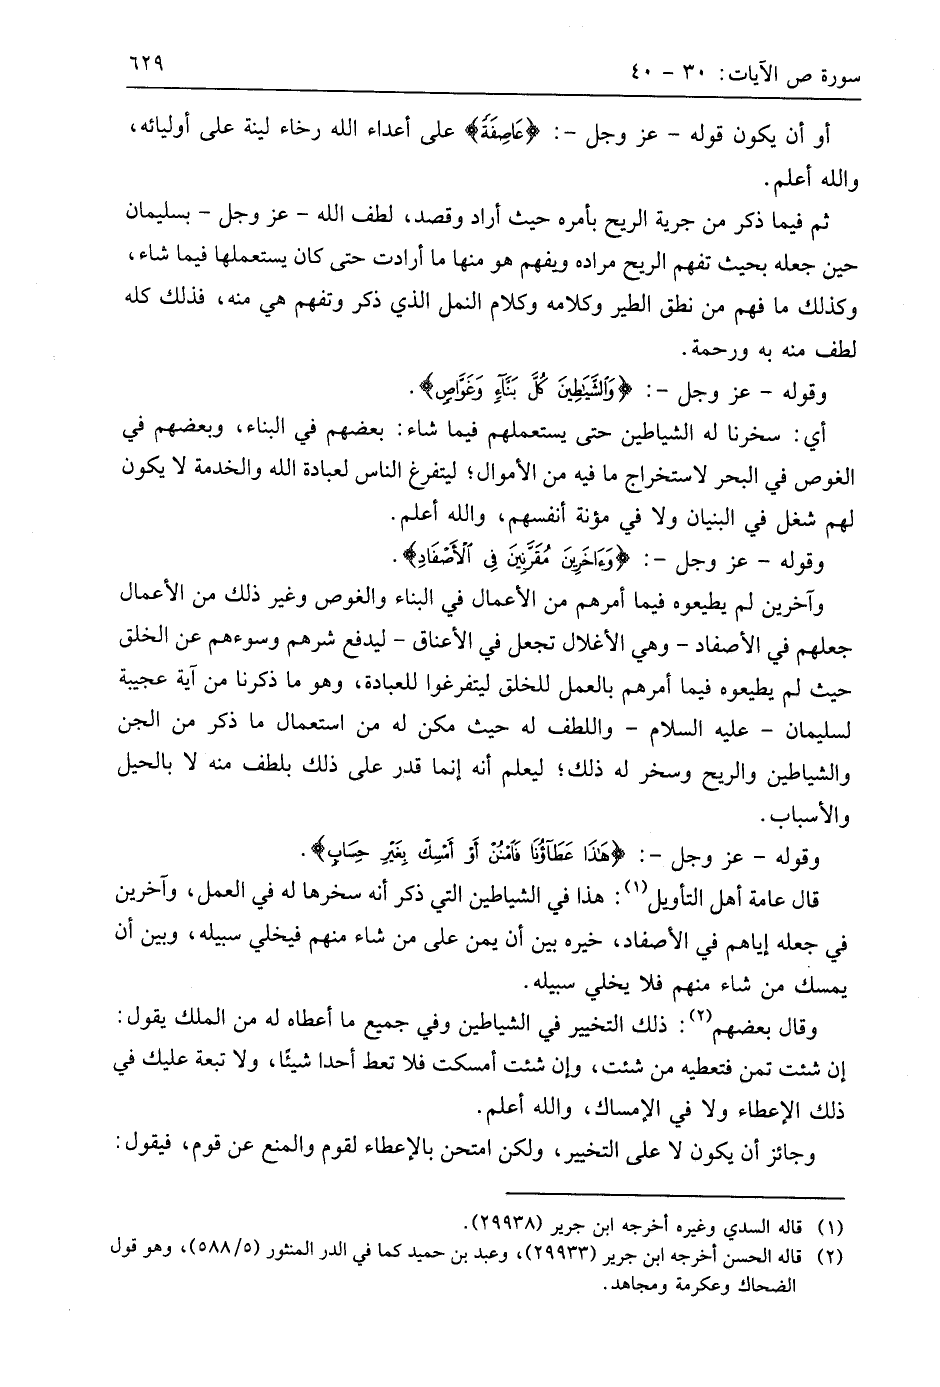 سورة ص الآيات: ٣٠ - ٤٠
٦٢٩
أو أن يكون قوله - عز وجل -: ﴿عَاصِفَةً﴾ على أعداء الله رخاء لينة على أوليائه،
والله أعلم.
ثم فيما ذكر من جرية الريح بأمره حيث أراد وقصد، لطف الله - عز وجل - بسليمان
حين جعله بحيث تفهم الريح مراده ويفهم هو منها ما أرادت حتى كان يستعملها فيما شاء،
وكذلك ما فهم من نطق الطير وكلامه وكلام النمل الذي ذكر وتفهم هي منه، فذلك كله
لطف منه به ورحمة.
وقوله - عز وجل -: ﴿وَٱلشَّيَٰطِينَ كُلَّ بَنَّآءٍ وَغَوَّاصٍ﴾.
أي: سخرنا له الشياطين حتى يستعملهم فيما شاء: بعضهم في البناء، وبعضهم في
الغوص في البحر لاستخراج ما فيه من الأموال؛ ليتفرغ الناس لعبادة الله والخدمة لا يكون
لهم شغل في البنيان ولا في مؤنة أنفسهم، والله أعلم.
وقوله - عز وجل -: ﴿وَءَاخَرِينَ مُقَرَّنِينَ فِى ٱلْأَصْفَادِ﴾.
وآخرين لم يطيعوه فيما أمرهم من الأعمال في البناء والغوص وغير ذلك من الأعمال
جعلهم في الأصفاد - وهي الأغلال تجعل في الأعناق - ليدفع شرهم وسوءهم عن الخلق
حيث لم يطيعوه فيما أمرهم بالعمل للخلق ليتفرغوا للعبادة، وهو ما ذكرنا من آية عجيبة
لسليمان - عليه السلام - واللطف له حيث مكن له من استعمال ما ذكر من الجن
والشياطين والريح وسخر له ذلك؛ ليعلم أنه إنما قدر على ذلك بلطف منه لا بالحيل
والأسباب.
وقوله - عز وجل -: ﴿هَٰذَا عَطَآؤُنَا فَٱمْنُنْ أَوْ أَمْسِكْ بِغَيْرِ حِسَابٍ﴾.
قال عامة أهل التأويل(١): هذا في الشياطين التي ذكر أنه سخرها له في العمل، وآخرين
في جعله إياهم في الأصفاد، خيره بين أن يمن على من شاء منهم فيخلي سبيله، وبين أن
يمسك من شاء منهم فلا يخلي سبيله.
وقال بعضهم(٢): ذلك التخيير في الشياطين وفي جميع ما أعطاه له من الملك يقول:
إن شئت تمن فتعطيه من شئت، وإن شئت أمسكت فلا تعط أحدا شيئًا، ولا تبعة عليك في
ذلك الإعطاء ولا في الإمساك، والله أعلم.
وجائز أن يكون لا على التخيير، ولكن امتحن بالإعطاء لقوم والمنع عن قوم، فيقول:
(١) قاله السدي وغيره أخرجه ابن جرير (٢٩٩٣٨).
(٢) قاله الحسن أخرجه ابن جرير (٢٩٩٣٣)، وعبد بن حميد كما في الدر المنثور (٥/٥٨٨)، وهو قول
الضحاك وعكرمة ومجاهد.